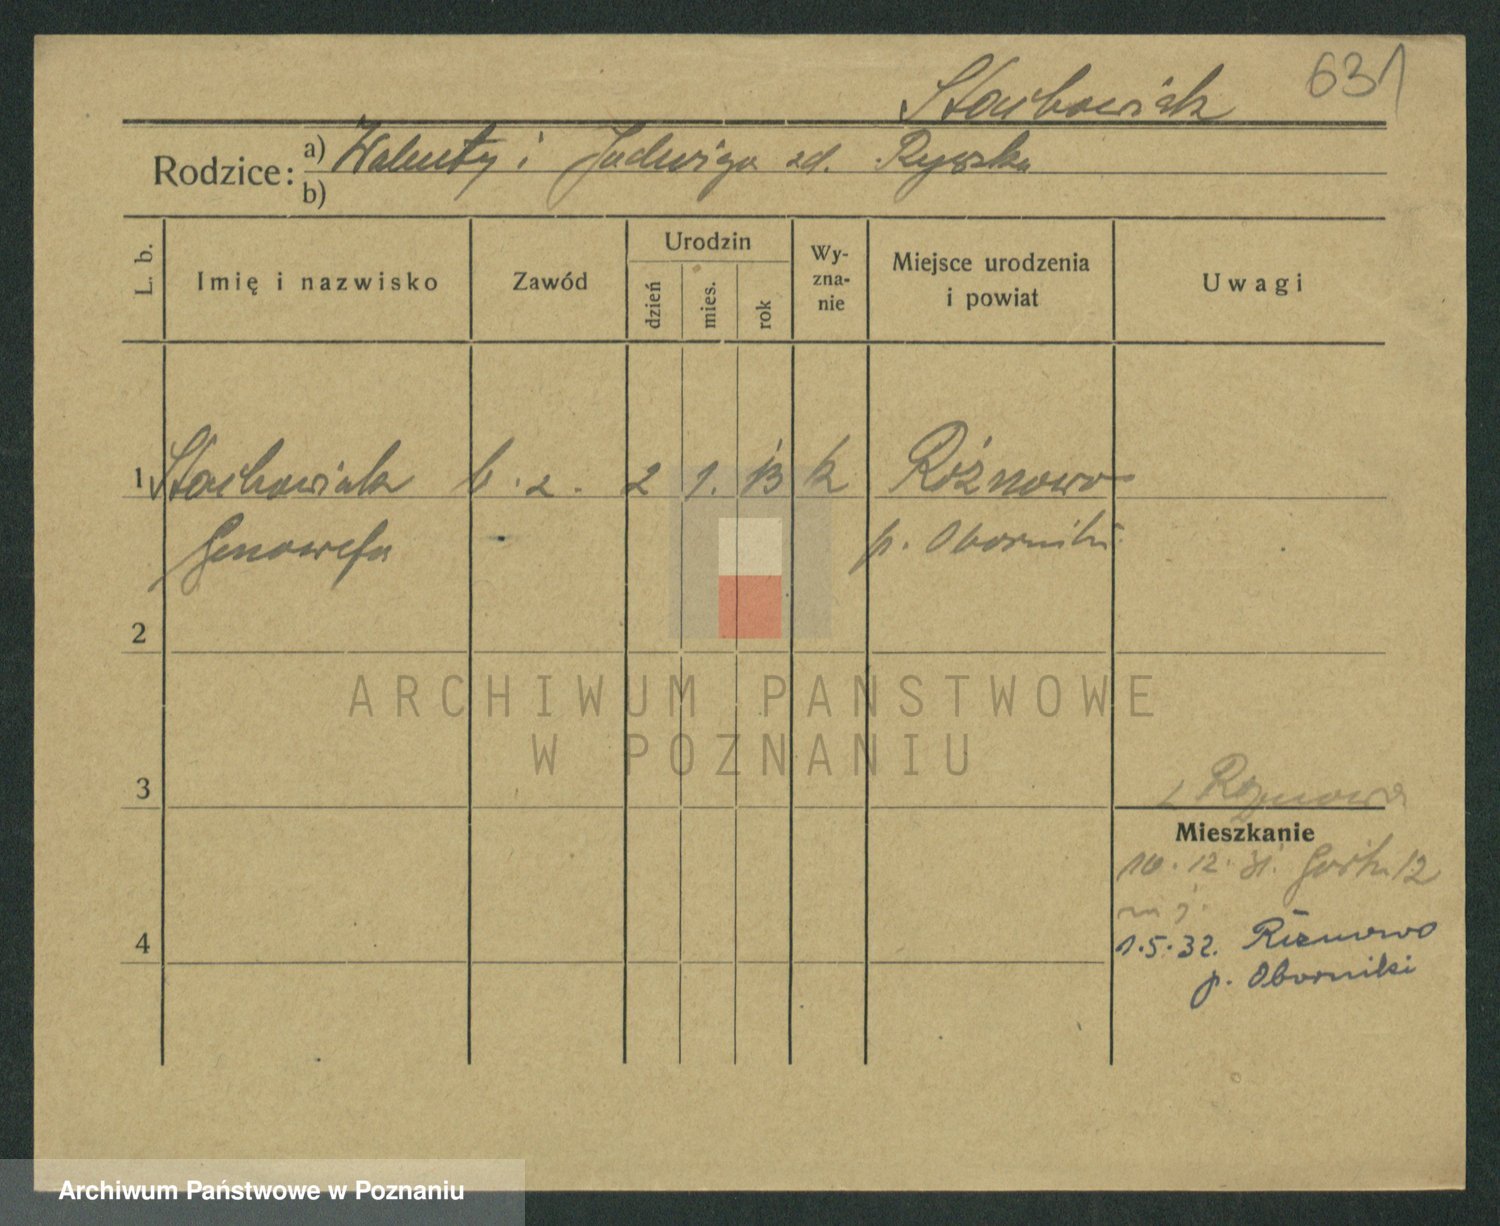 631
Stachowiak
Rodzice: a) Walenty i Jadwiga zd. Ryszka
b)
L. b.
Imię i nazwisko
Zawód
Urodzin
dzień
mies.
rok
Wy-
zna-
nie
Miejsce urodzenia
i powiat
Uwagi
1 Stachowiak b. z. 2 1. 13 k Różnowo
Genowefa p. Oborniki
2
3
z Różnowa
Mieszkanie
10.12.31. 12
4
1.5.32. Różnowo
p. Oborniki
ARCHIWUM PAŃSTWOWE
W POZNANIU
Archiwum Państwowe w Poznaniu